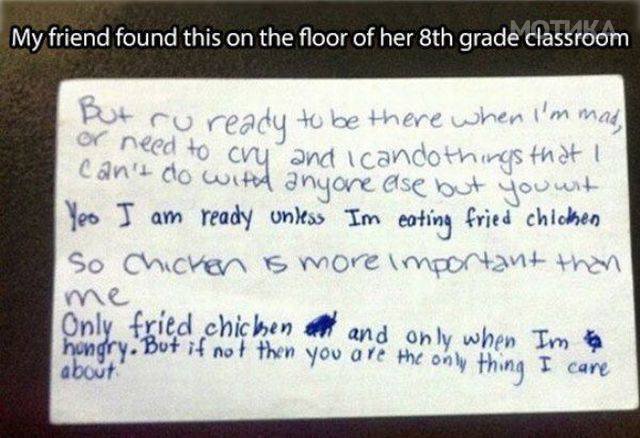 МОТИКА
My friend found this on the floor of her 8th grade classroom
But r u ready to be there when i'm mad,
or need to cry and i can do things that I
can't do with anyone else but you wit
Yes I am ready unless Im eating fried chicken
So chicken is more important than
me
Only fried chicken and only when Im
hungry. But if not then you are the only thing I care
about.